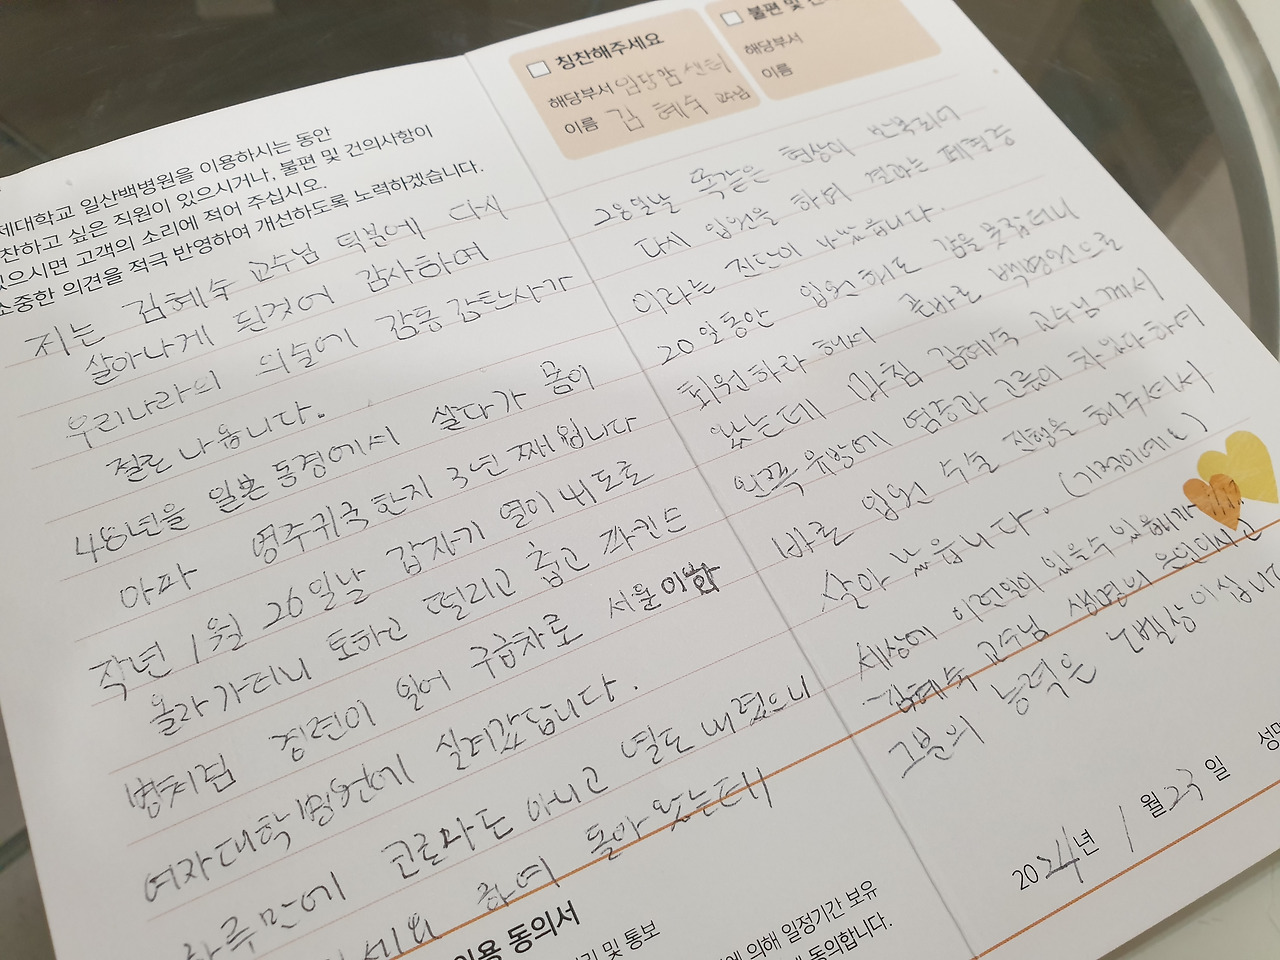 칭찬해주세요
해당부서 입당맘센터
이름 김혜숙 교수님
불편 및
해당부서
이름
제대학교 일산백병원을 이용하시는 동안
찬하고 싶은 직원이 있으시거나, 불편 및 건의사항이
있으시면 고객의 소리에 적어 주십시오.
소중한 의견을 적극 반영하여 개선하도록 노력하겠습니다.
저는 김혜숙 교수님 덕분에 다시
살아나게 된것에 감사하며
우리나라의 의술에 감동 감탄사가
절로 나옵니다.
48년을 일본 동경에서 살다가 몸이
아파 영주귀국한지 3년째 됩니다
작년 1월 26일날 갑자기 열이 41도로
올라가더니 토하고 떨리고 춥고 파킨슨
병처럼 경련이 일어 구급차로 서울이화
여자대학병원에 실려갔답니다.
하루만에 코로나도 아니고 열도 내렸으니
하여 돌아왔는데
그 이튿날 똑같은 현상이 반복되어
다시 입원을 하며 결과는 패혈증
이라는 진단이 나왔읍니다.
20일동안 입원해도 감을 못잡더니
퇴원하라 해서 곧바로 백병원으로
왔는데 마침 김혜숙 교수님께서
왼쪽 유방에 염증과 고름이 차있다 하여
바로 입원 수술 진행을 해주셔서
살아 났읍니다. (기적이예요)
세상에 이런일이 있을수 있읍니까
김혜숙 교수님 생명의 은인이시고
그분의 능력은 노벨상이십니다
2024년 1월 23일
이용 동의서
및 통보
에 의해 일정기간 보유
동의합니다.